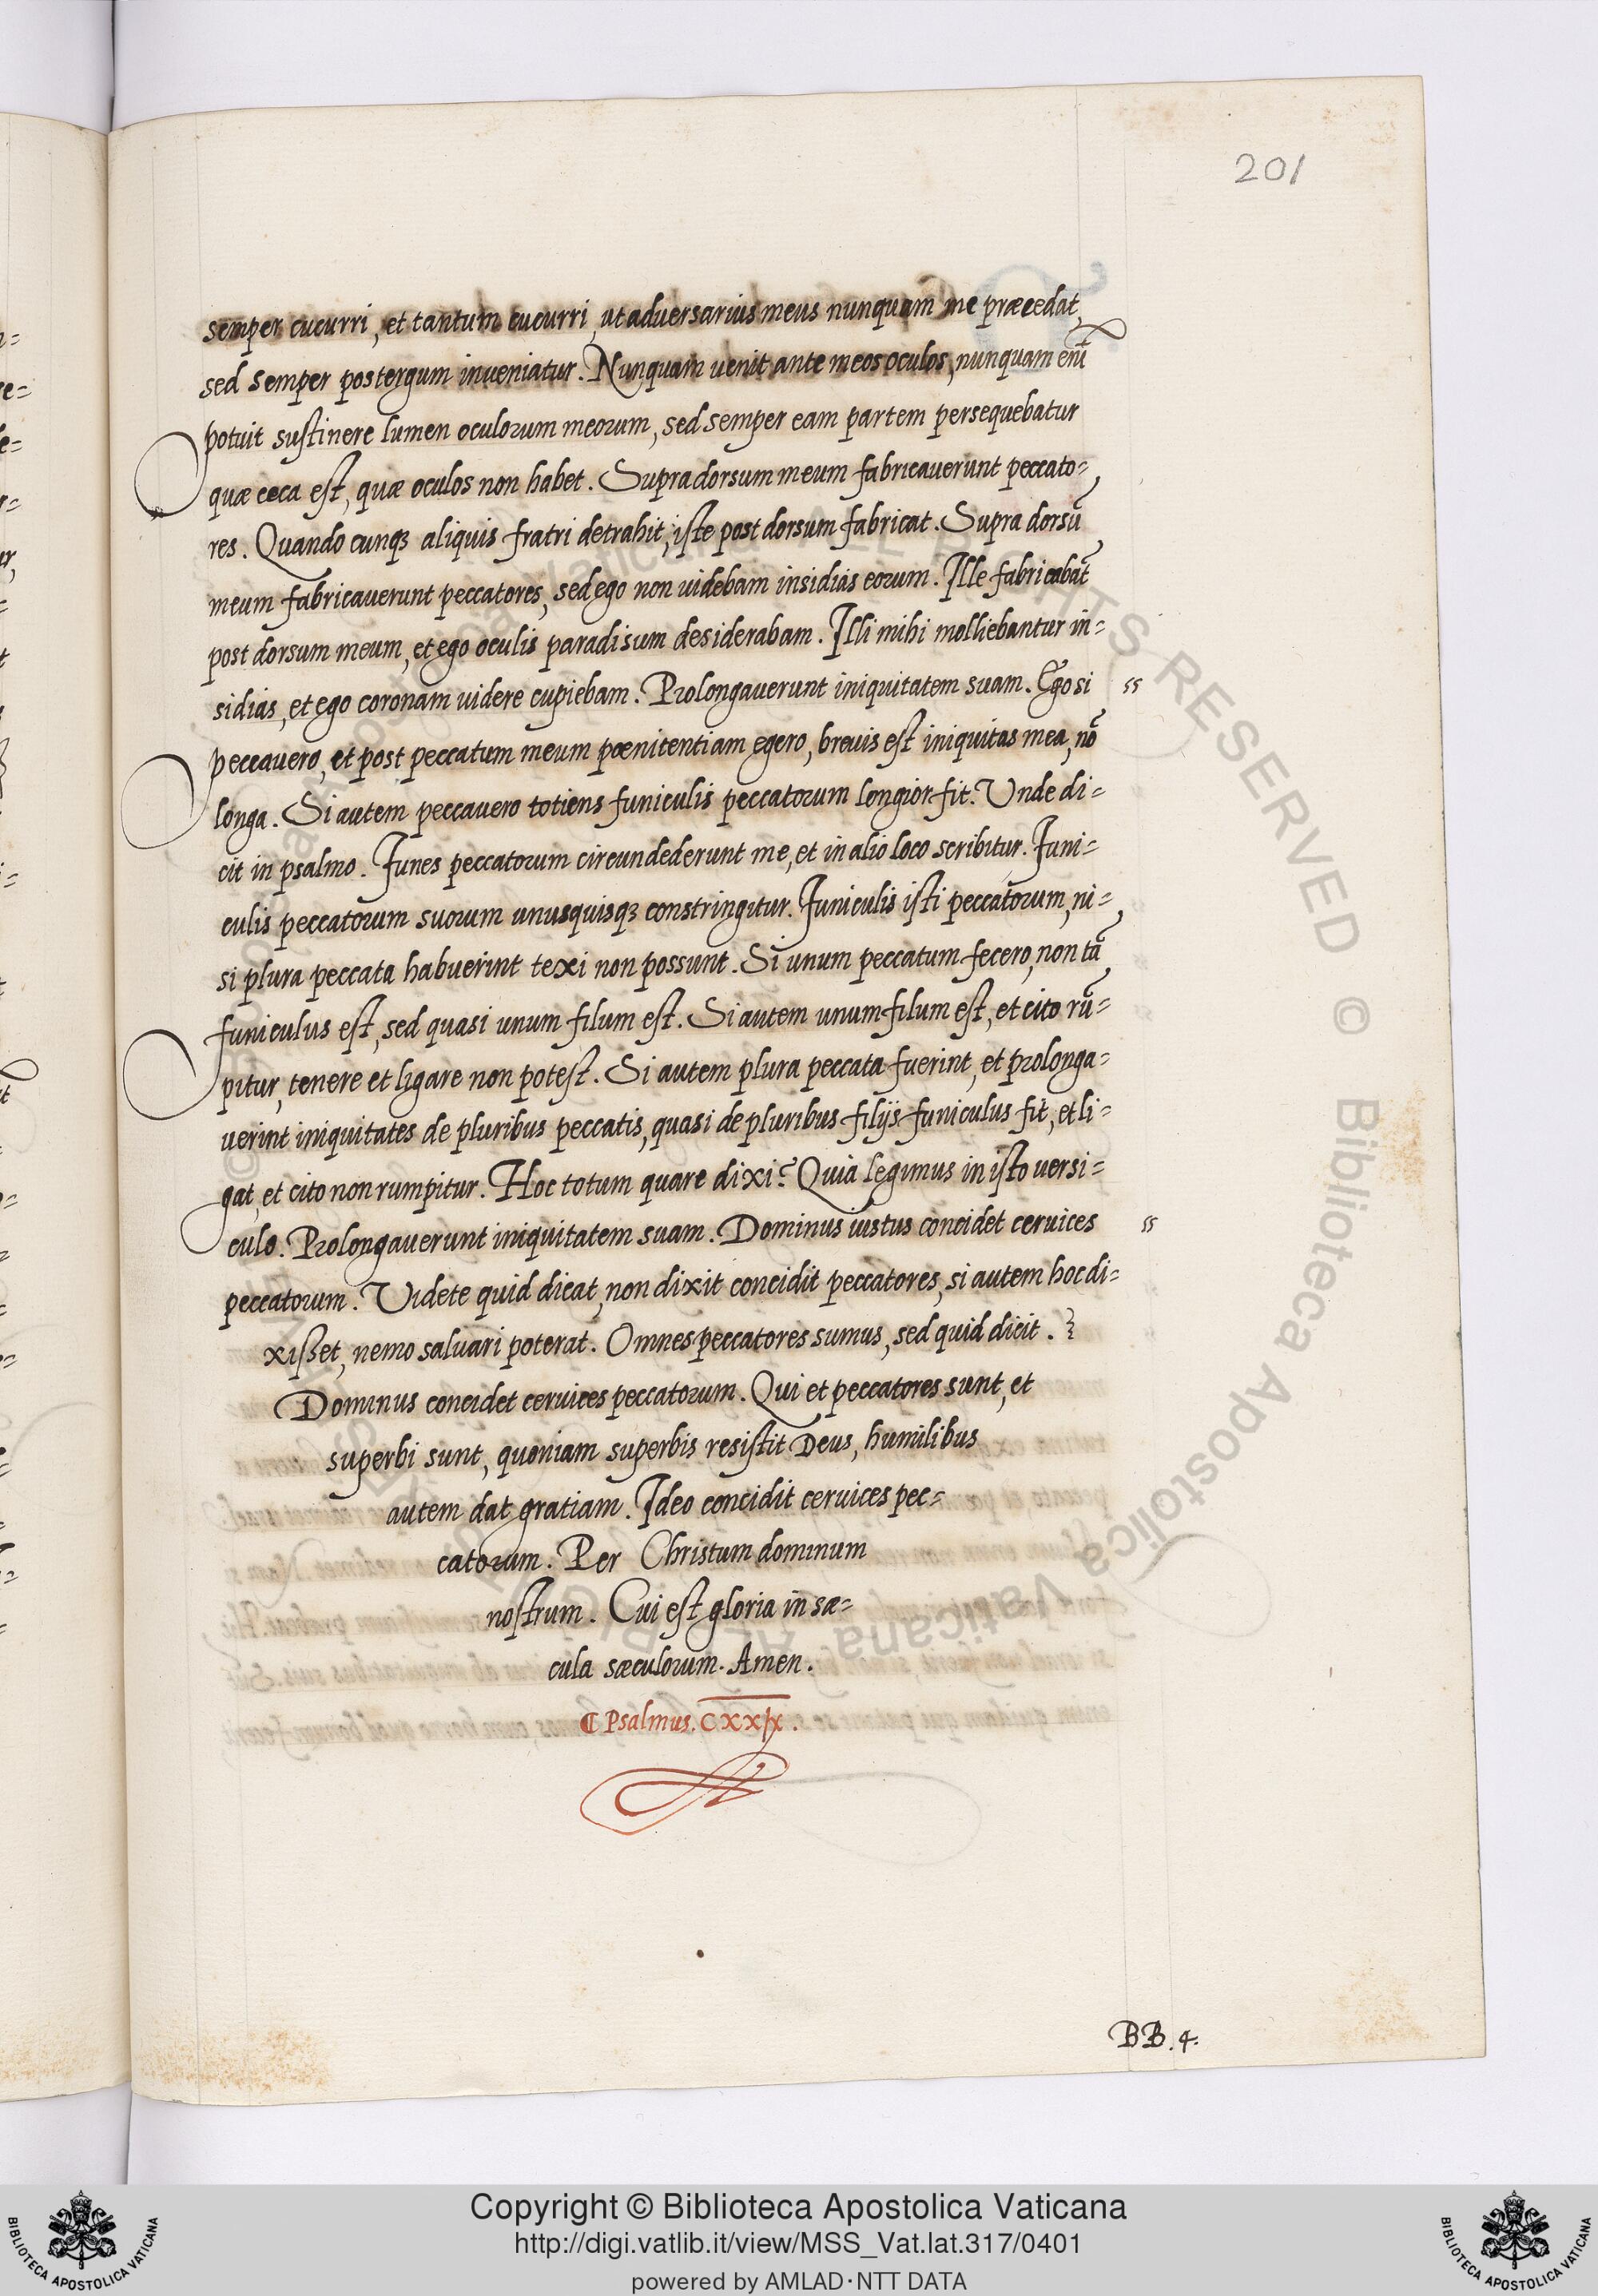 201
semper cucurri, et tantum cucurri, ut adversarius meus nunquam me præcedat,
sed semper postergum inveniatur. Nunquam venit ante meos oculos, nunquam eni͂
potuit sustinere lumen oculorum meorum, sed semper eam partem persequebatur
quæ ceca est, quæ oculos non habet. Supra dorsum meum fabricaverunt peccato=
res. Quando cunqꝫ aliquis fratri detrahit, iste post dorsum fabricat. Supra dorsu͂
meum fabricauerunt peccatores, sed ego non uidebam insidias eorum. Ille fabricabat
post dorsum meum, et ego oculis paradisum desiderabam. Illi mihi molliebantur in=
sidias, et ego coronam uidere cupiebam. Prolongauerunt iniquitatem suam. Ego si
peccauero, et post peccatum meum pœnitentiam egero, breuis est iniquitas mea, no͂
longa. Si autem peccavero totiens funiculis peccatorum longior fit. Unde di=
cit in psalmo. Funes peccatorum circundederunt me, et in alio loco scribitur. Funi=
culis peccatorum suorum unusquisqꝫ constringitur. Funiculis isti peccatorum, ni=
si plura peccata habuerint texi non possunt. Si unum peccatum fecero, non ta͂
funiculus est, sed quasi unum filum est. Si autem unum filum est, et cito ru͂=
pitur, tenere et ligare non potest. Si autem plura peccata fuerint, et prolonga=
uerint iniquitates de pluribus peccatis, quasi de pluribus filijs funiculus fit, et li=
gat, et cito non rumpitur. Hoc totum quare dixi? Quia legimus in isto uersi=
culo. Prolongauerunt iniquitatem suam. Dominus iustus concidet ceruices
peccatorum. Videte quid dicat, non dixit concidit peccatores, si autem hoc di=
xisset, nemo saluari poterat. Omnes peccatores sumus, sed quid dicit.
Dominus concidet ceruices peccatorum. Qui et peccatores sunt, et
superbi sunt, quoniam superbis resistit Deus, humilibus
autem dat gratiam. Ideo concidit ceruices pec=
catorum. Per Christum dominum
nostrum. Cui est gloria in sæ=
cula sæculorum. Amen.
¶ Psalmus. CXXIX.
BB. 4.
Copyright © Biblioteca Apostolica Vaticana
http://digi.vatlib.it/view/MSS_Vat.lat.317/0401
powered by AMLAD·NTT DATA
BIBLIOTECA APOSTOLICA VATICANA
BIBLIOTECA APOSTOLICA VATICANA